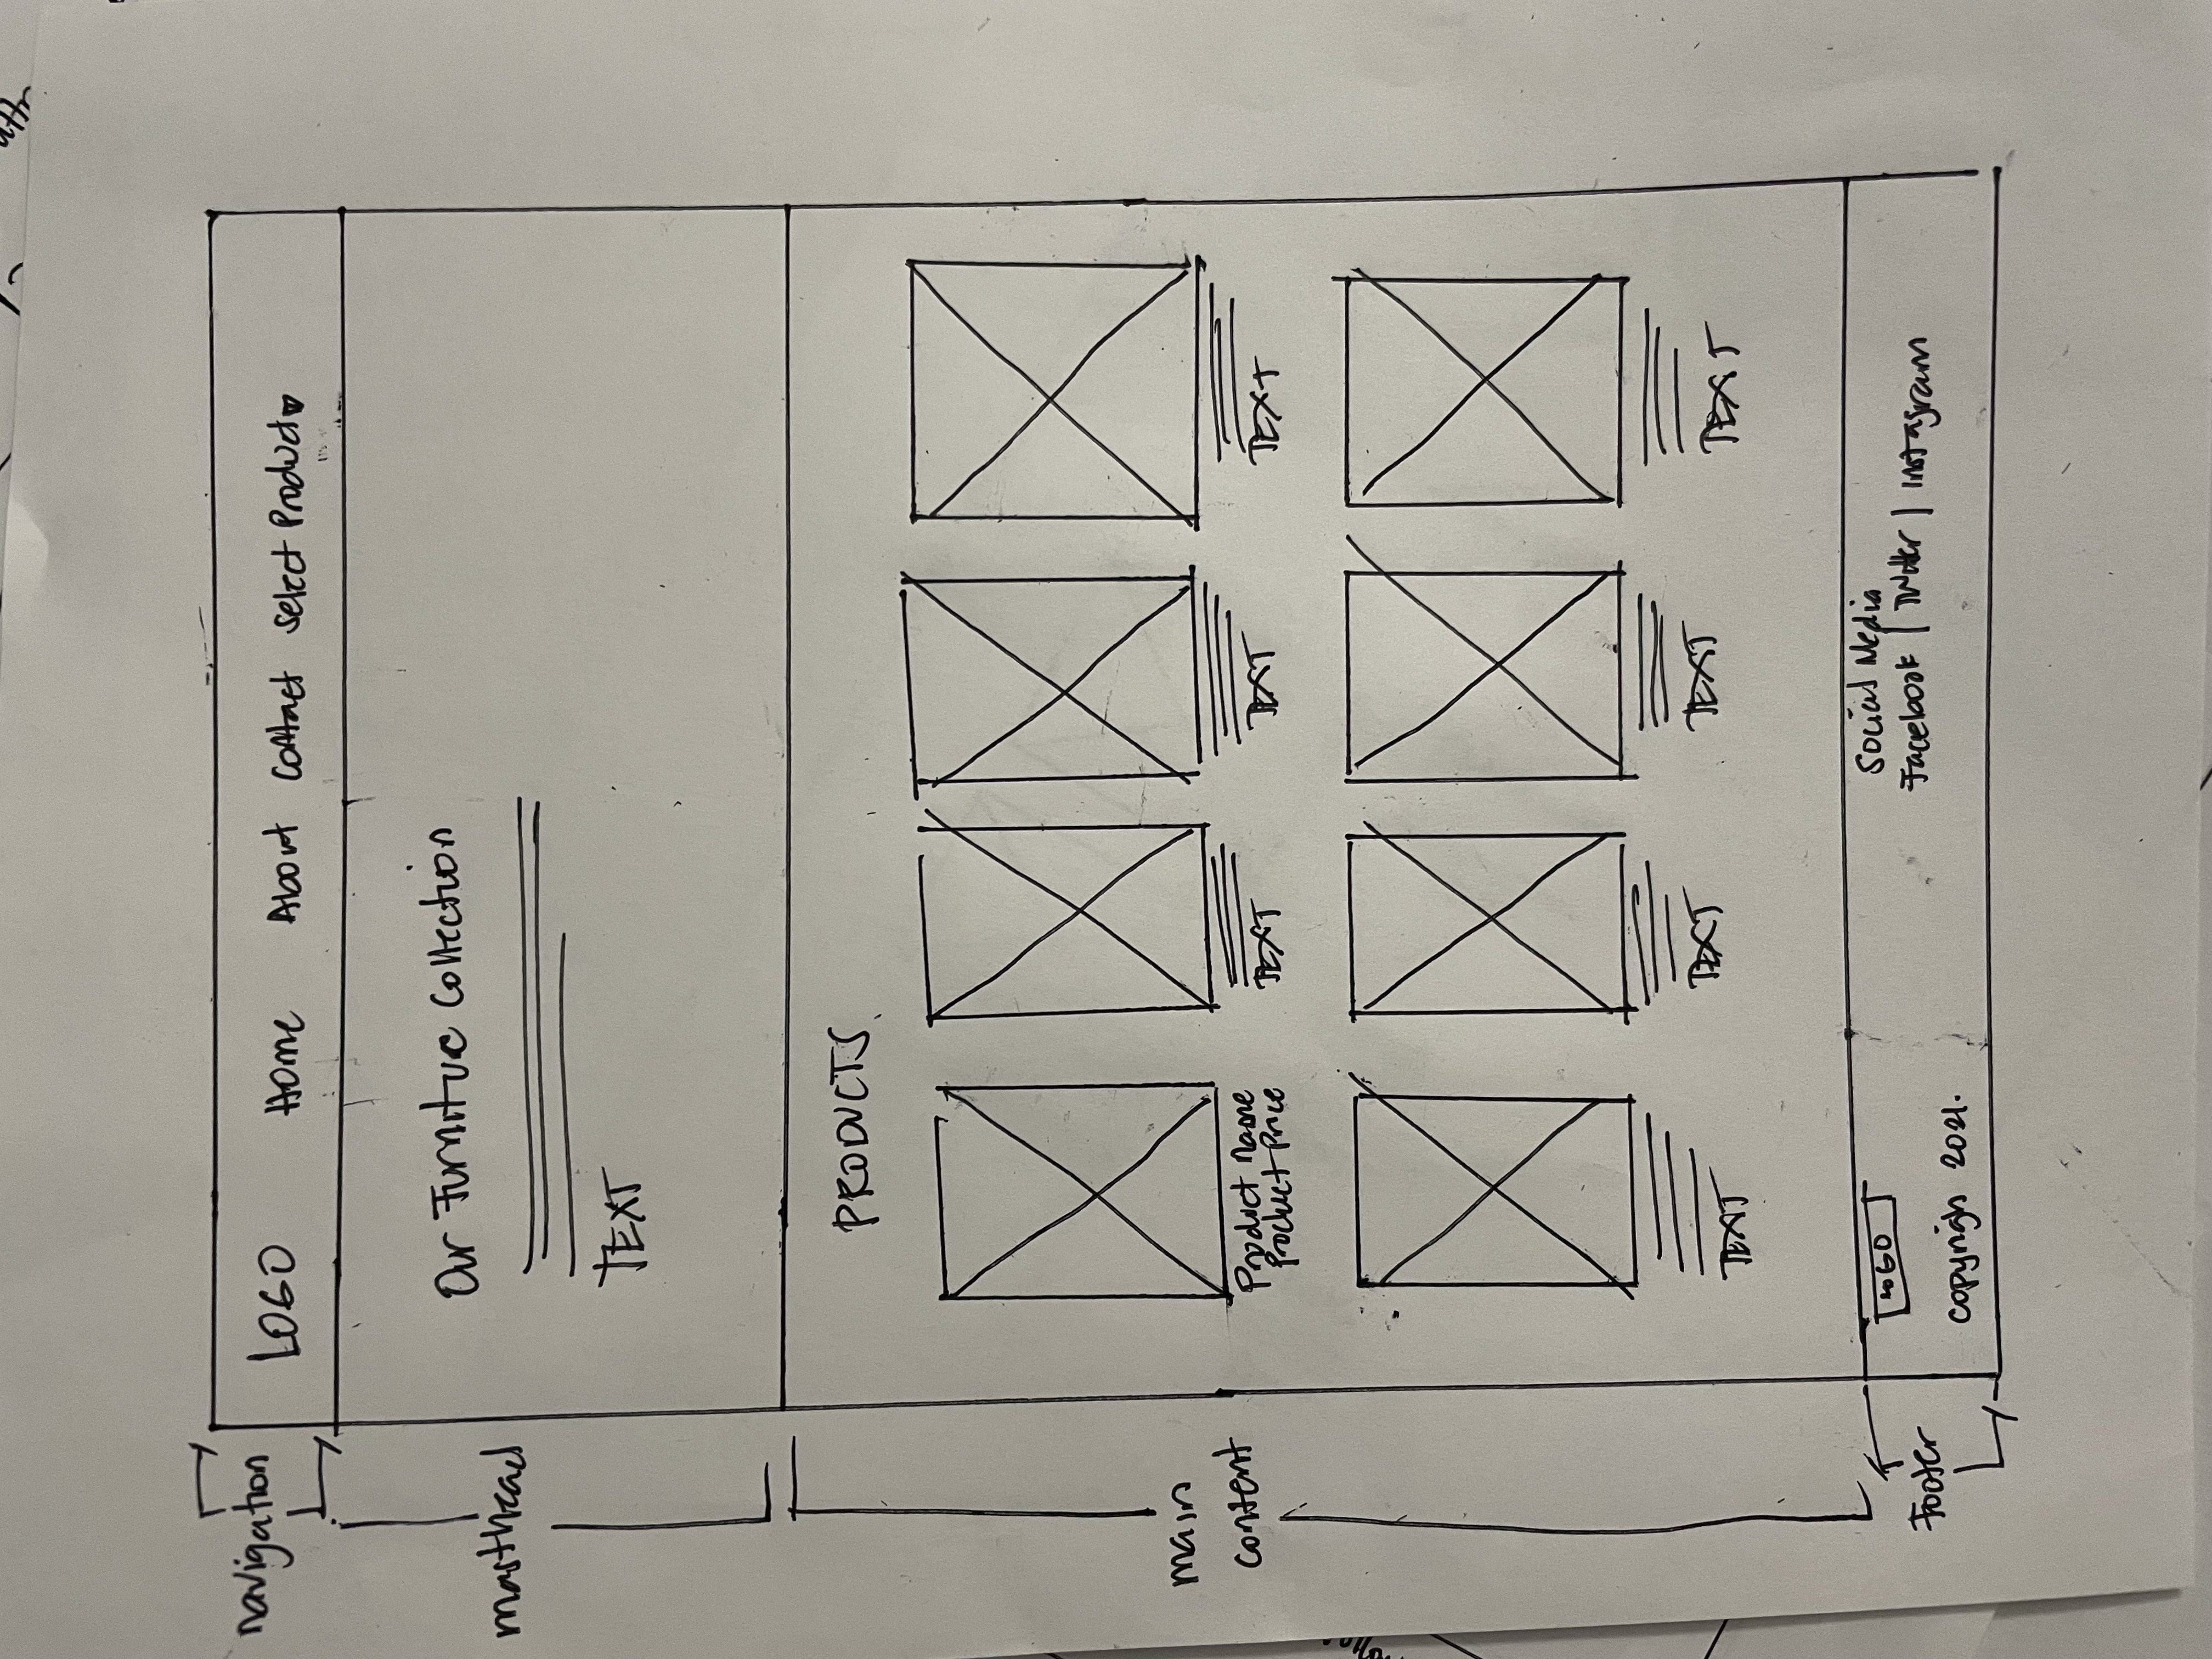 navigation
LOGO Home About Contact Select Product
masthead
Our Furniture Collection
TEXT
PRODUCTS
main
content
Product name
Product Price
TEXT TEXT TEXT
TEXT TEXT TEXT TEXT
Footer
LOGO
Social Media
Facebook | Twitter | Instagram
copyrigh 2021.